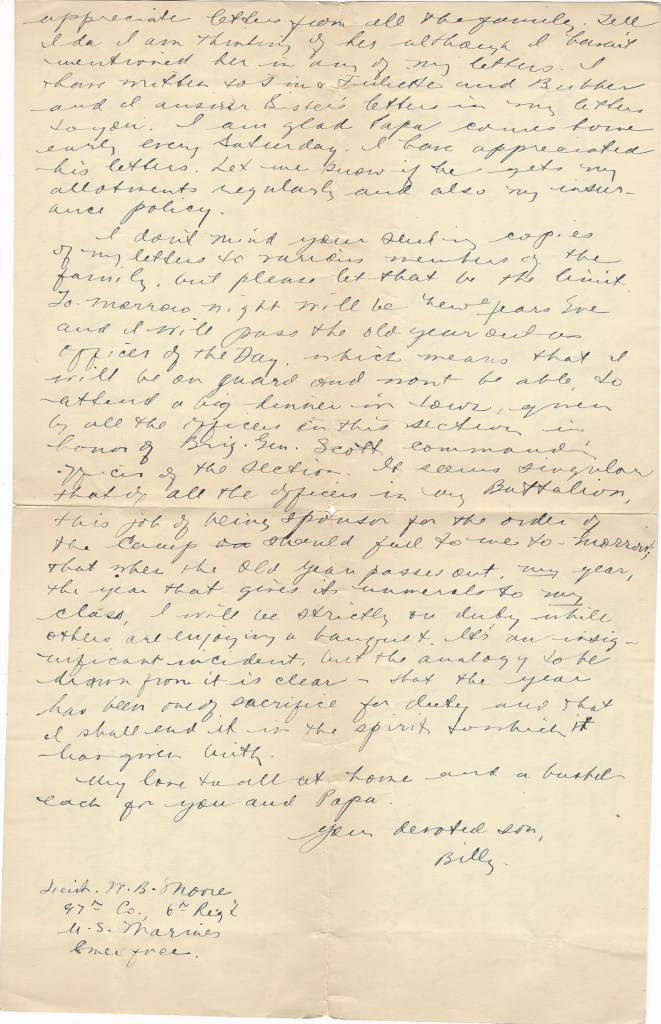 appreciate letters from all the family. Tell
Ida I am thinking of her although I havn't
mentioned her in any of my letters. I
have written to Jim & Juliette and Bubber
and I answer Sister's letters in my letters
to you. I am glad Papa comes home
early every Saturday. I have appreciated
his letters. Let me know if he gets my
allotments regularly and also my insur-
ance policy.
I don't mind your sending copies
of my letters to various members of the
family, but please let that be the limit.
To-morrow night will be New Years Eve
and I will pass the old year out as
Officer of the Day, which means that I
will be on guard and wont be able to
attend a big dinner in town, given
by all the officers in this section in
honor of Brig. Gen. Scott, commandin
officer of the section. It seems singular
that of all the officers in my Battalion,
this job of being sponsor for the order of
the Camp should fall to me to-morrow;
that when the old year passes out, my year,
the year that gives its numerals to my
class, I will be strictly on duty while
others are enjoying a banquet. It's an insig-
nificant incident, but the analogy to be
drawn from it is clear - that the year
has been one of sacrifice for duty and that
I shall end it in the spirit to which it
has given birth.
My love to all at home and a bushel
each for you and Papa.
Your devoted son,
Billy.
Lieut. W. B. Moore
97th Co., 6th Reg't
U. S. Marines